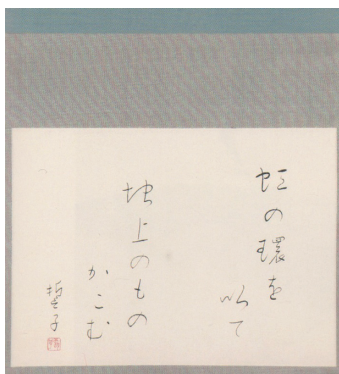 虹の環を
以て
地上のもの
かこむ
誓子